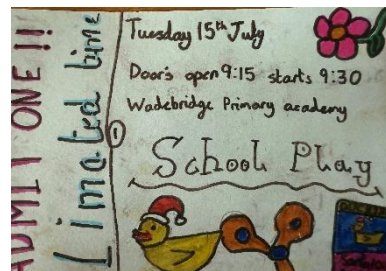 ADMIT ONE!!
Limated time
1
Tuesday 15th July
Door's open 9:15 starts 9:30
Wadebridge Primary academy
School Play